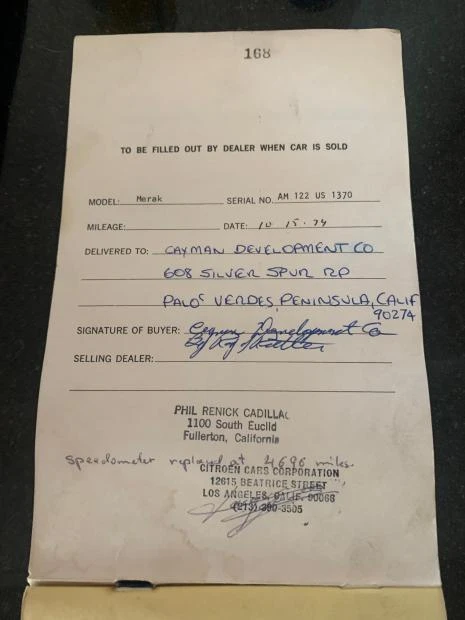 168
TO BE FILLED OUT BY DEALER WHEN CAR IS SOLD
MODEL: Merak SERIAL NO. AM 122 US 1370
MILEAGE: DATE: 10 15-74
DELIVERED TO: CAYMAN DEVELOPMENT CO
608 SILVER SPUR RD
PALOS VERDES, PENINSULA, CALIF
90274
SIGNATURE OF BUYER: Cayman Development Co
By
SELLING DEALER:
PHIL RENICK CADILLAC
1100 South Euclid
Fullerton, California
speedometer replaced at 4696 miles.
CITROEN CARS CORPORATION
12615 BEATRICE STREET
LOS ANGELES, CALIF. 90066
(213) 390-3505